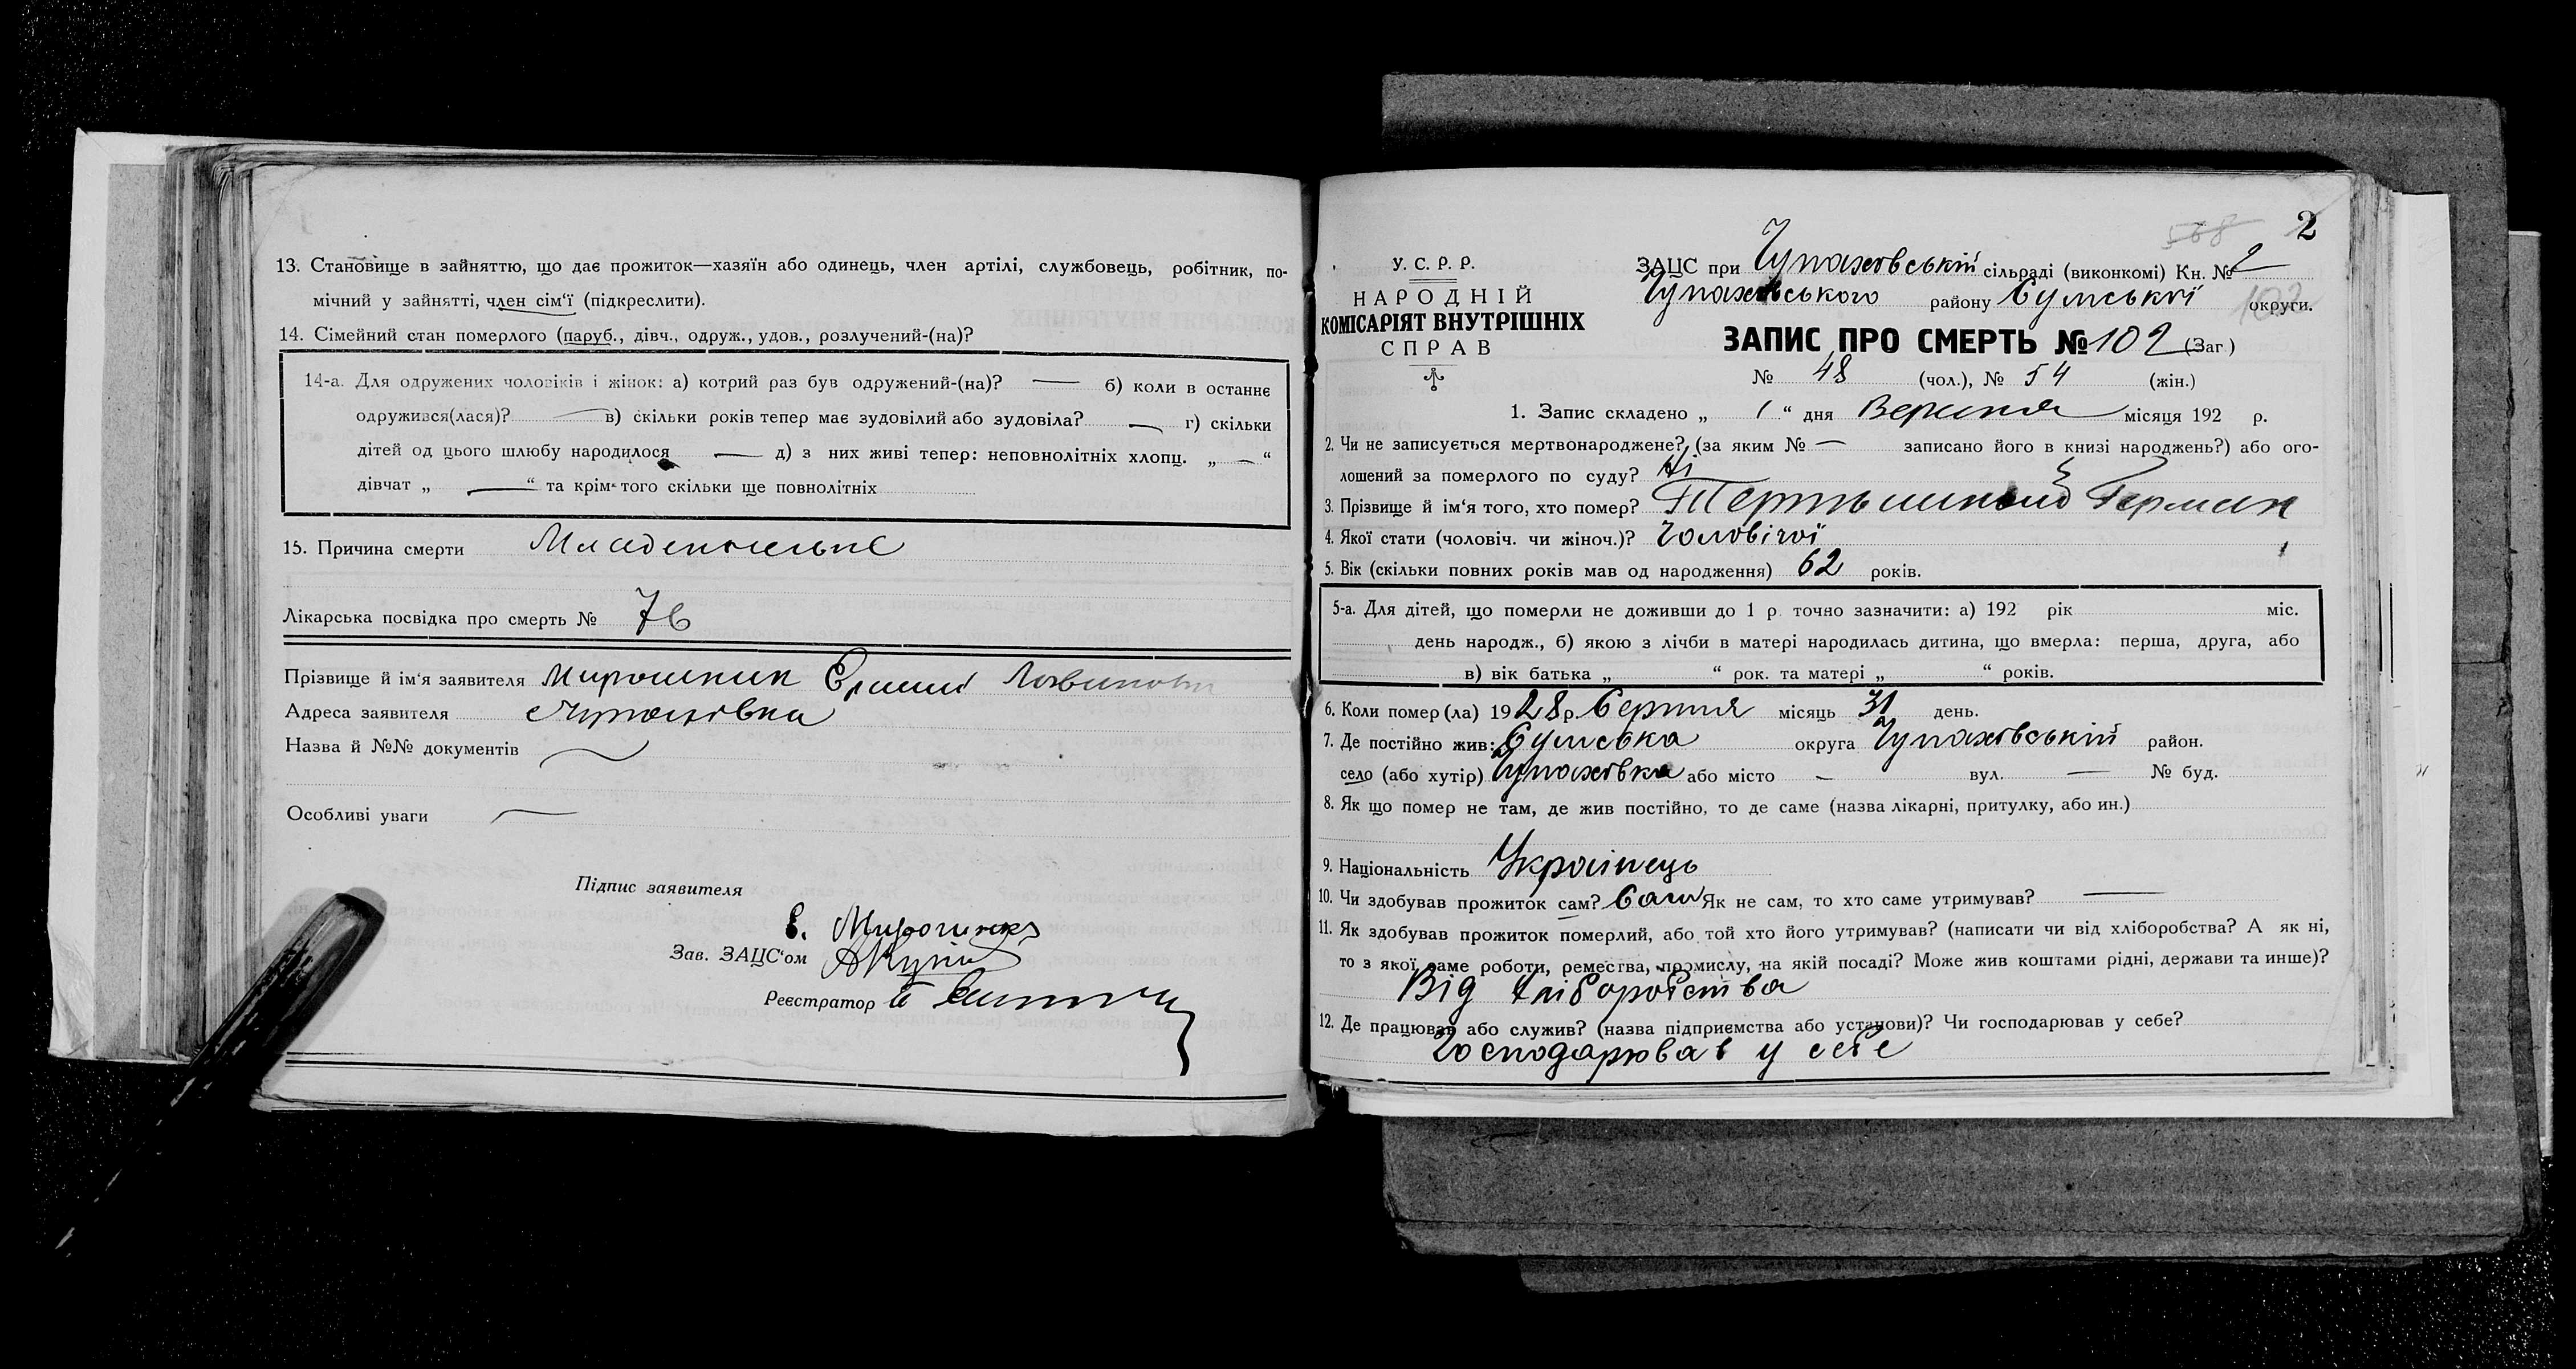 13. Становище в зайняттю, що дає прожиток—хазяїн або одинець, член артілі, службовець, робітник, по-
мічний у зайнятті, член сім'ї (підкреслити).
14. Сімейний стан померлого (паруб., дівч., одруж., удов., розлучений-(на)?
14-а. Для одружених чоловіків і жінок: а) котрий раз був одружений-(на)? — б) коли в останнє
одружився(лася)? — в) скільки років тепер має зудовілий або зудовіла? — г) скільки
дітей од цього шлюбу народилося — д) з них живі тепер: неповнолітніх хлопц. „ — “
дівчат „ — “ та крім того скільки ще повнолітніх
15. Причина смерти
Лікарська посвідка про смерть № 76
Прізвище й ім'я заявителя Мирошник
Адреса заявителя
Назва й №№ документів —
Особливі уваги —
Підпис заявителя
Зав. ЗАЦС'ом
Реєстратор
2
568
У. С. Р. Р.
НАРОДНІЙ
КОМІСАРІЯТ ВНУТРІШНІХ
СПРАВ
ЗАЦС при Чупахівській сільраді (виконкомі) Кн. № 2
Чупахівського району Сумської округи.
102
ЗАПИС ПРО СМЕРТЬ № 102 (Заг.)
№ 48 (чол.), № 54 (жін.)
1. Запис складено „ 1 “ дня Вересня місяця 192 р.
2. Чи не записується мертвонароджене? (за яким № — записано його в книзі народжень?) або ого-
лошений за померлого по суду? Ні
3. Прізвище й ім'я того, хто помер? Герман
4. Якої стати (чоловіч. чи жіноч.)? Чоловічої
5. Вік (скільки повних років мав од народження) 62 років.
5-а. Для дітей, що померли не доживши до 1 р. точно зазначити: а) 192 рік міс.
день народж., б) якою з лічби в матері народилась дитина, що вмерла: перша, друга, або
в) вік батька „ “ рок. та матері „ “ років.
6. Коли помер(ла) 1928 р. Серпня місяць 31 день.
7. Де постійно жив: Сумська округа Чупахівський район.
село (або хутір) Чупахівка або місто — вул. — № буд.
8. Як що помер не там, де жив постійно, то де саме (назва лікарні, притулку, або ин.)
9. Національність Українець
10. Чи здобував прожиток сам? Сам Як не сам, то хто саме утримував? —
11. Як здобував прожиток померлий, або той хто його утримував? (написати чи від хліборобства? А як ні,
то з якої саме роботи, ремества, промислу, на якій посаді? Може жив коштами рідні, держави та инше)?
Від хліборобства
12. Де працював або служив? (назва підприємства або установи)? Чи господарював у себе?
Господарював у себе